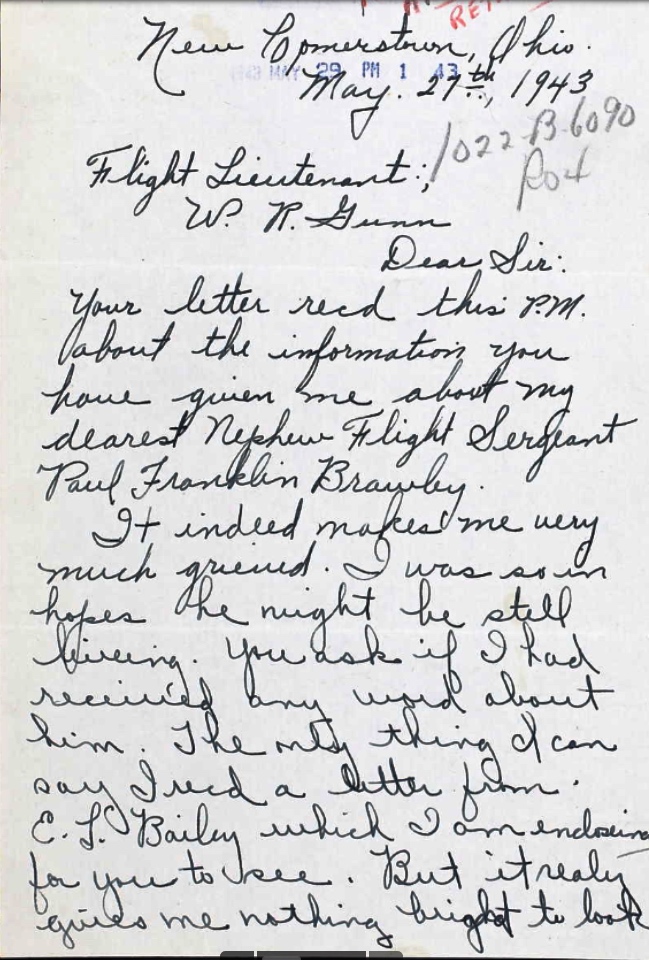 RE
New Comerstown, Ohio.
1943 MAY 29 PM 1 43
May. 27th., 1943
1022-B-6090
R04
Flight Lieutenant:,
W. R. Gunn
Dear Sir:
Your letter recd this P.M.
about the information you
have given me about my
dearest Nephew Flight Sergeant
Paul Franklin Brawley.
It indeed makes me very
much grieved. I was so in
hopes he might be still
liveing. You ask if I had
received any word about
him. The only thing I can
say I recd a letter from.
E. L. Bailey which I am enclosing
for you to see. But it realy
gives me nothing bright to look